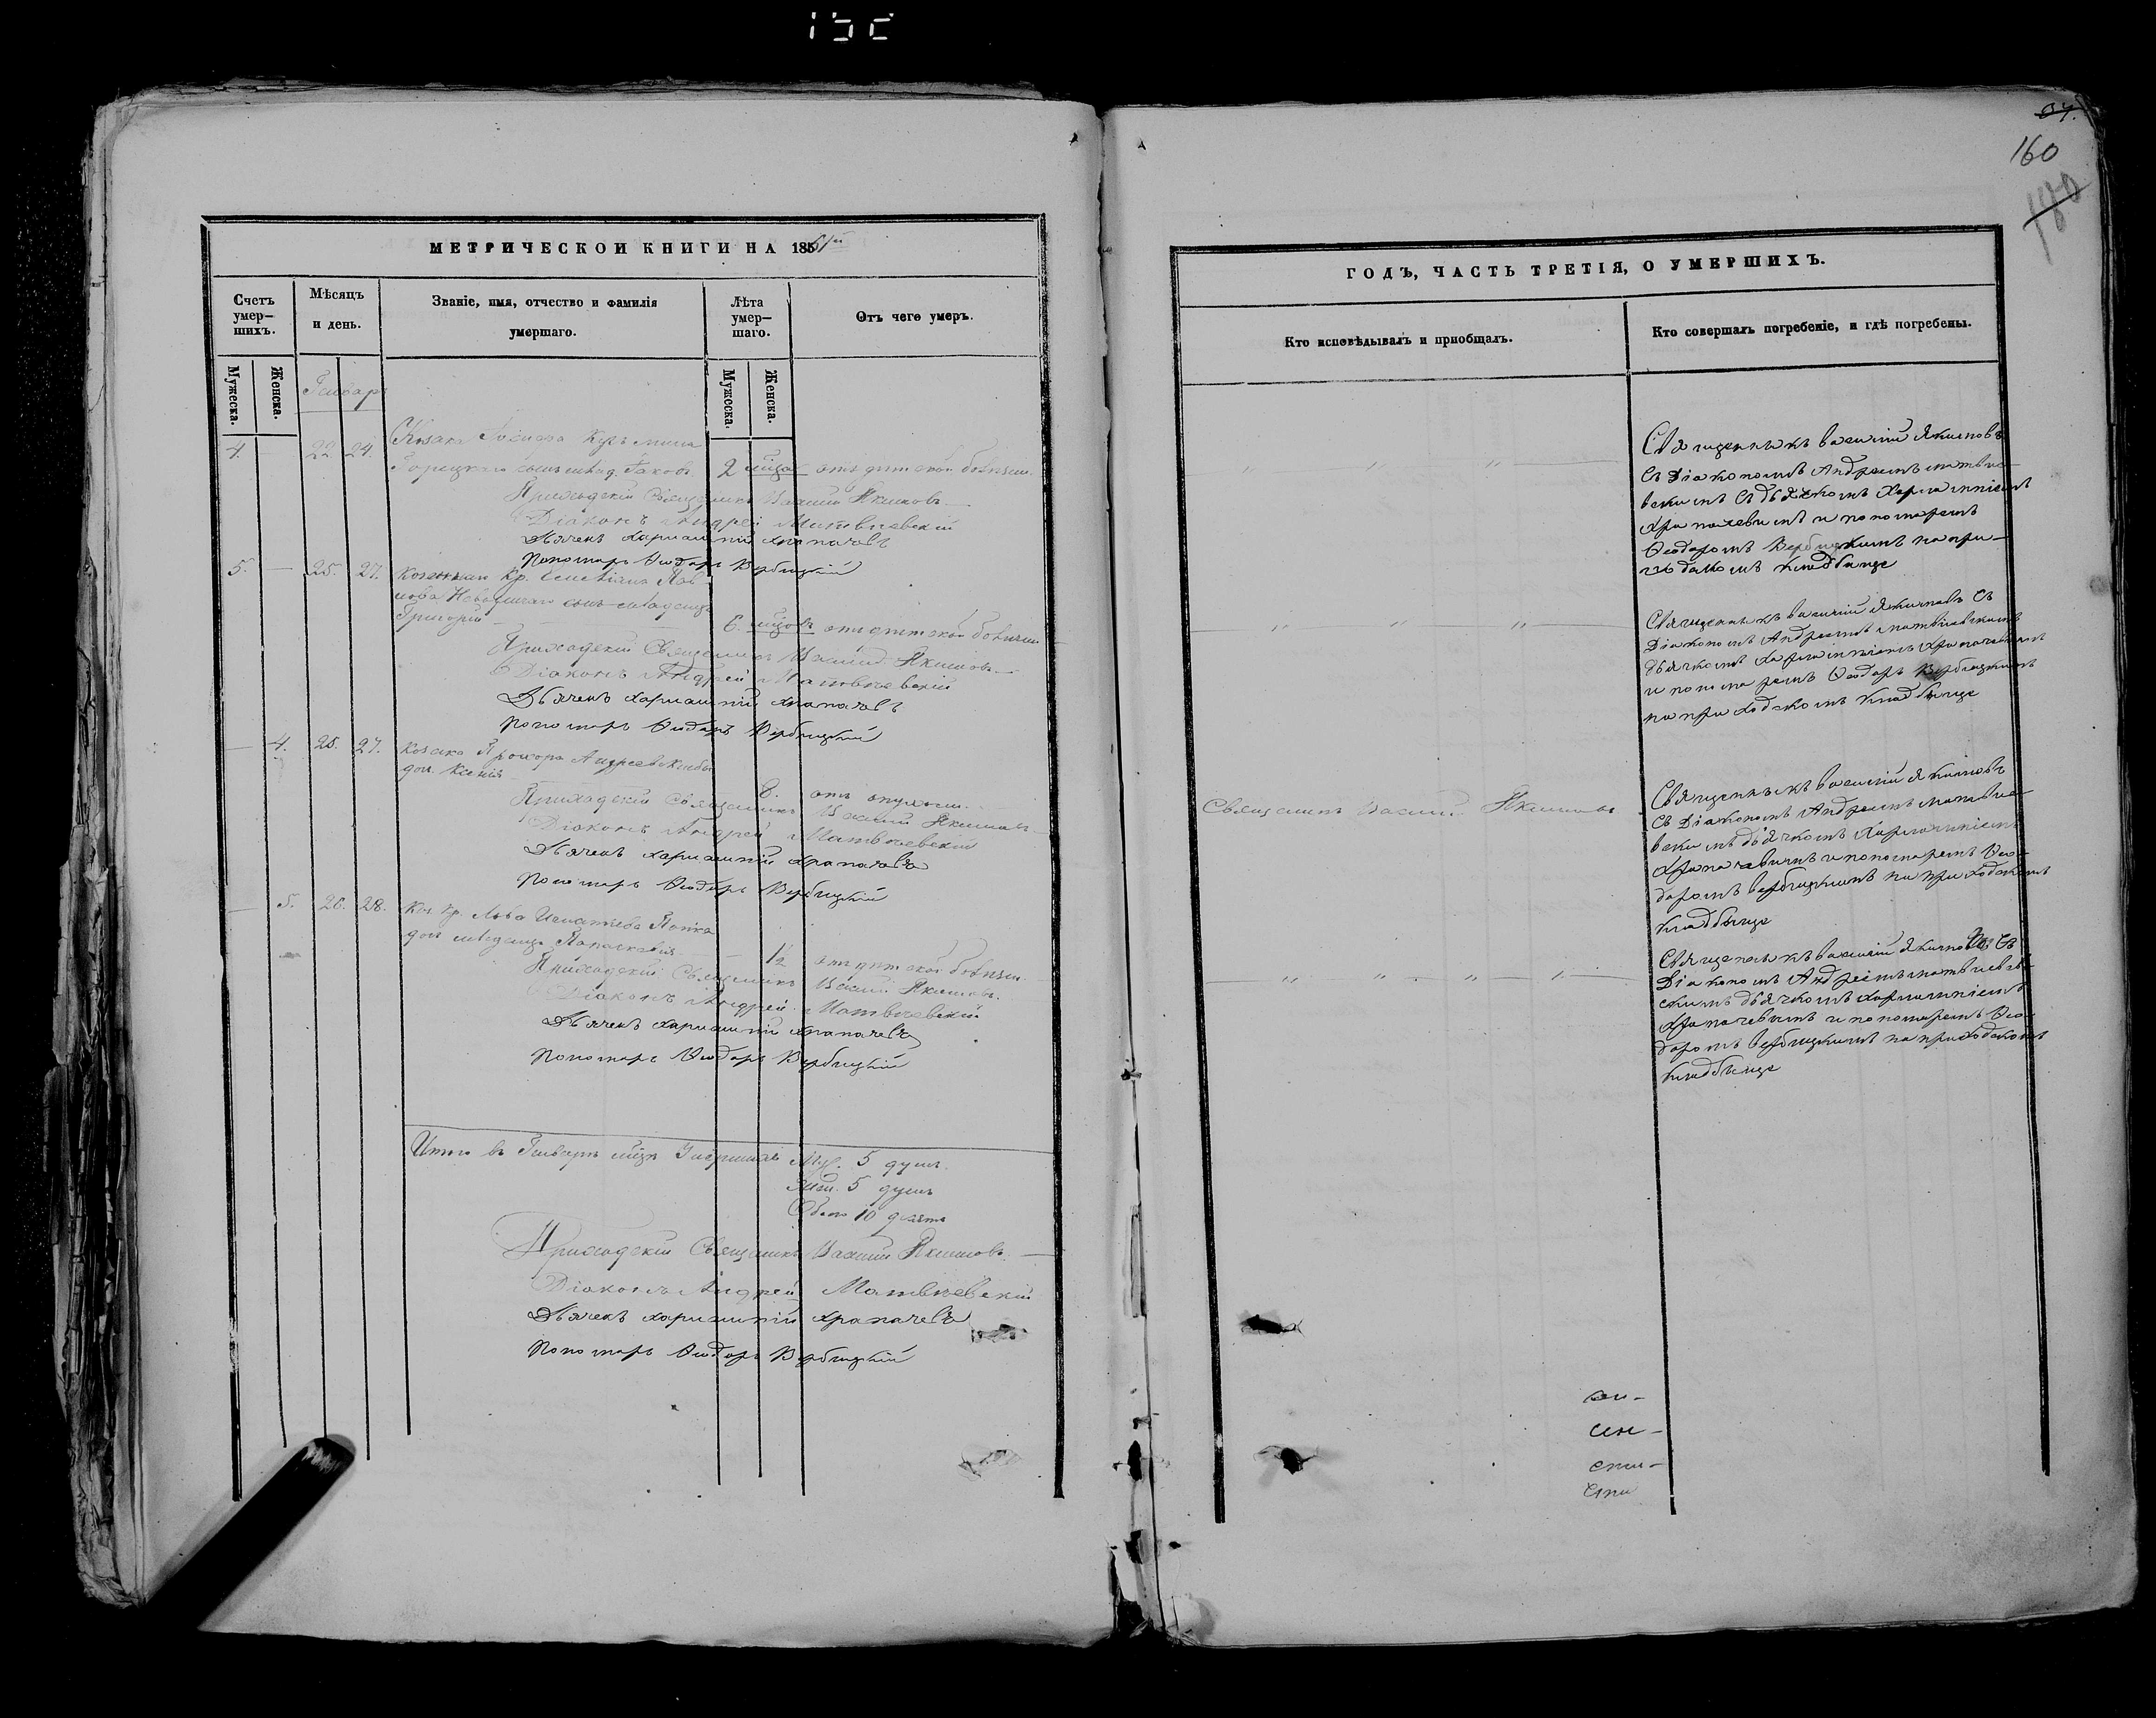 160
180
МЕТРИЧЕСКОЙ КНИГИ НА 1861й
Счетъ умер-
шихъ.
Мѣсяцъ
и день.
Званіе, имя, отчество и фамилія
умершаго.
Лѣта
умер-
шаго.
Отъ чего умеръ.
Мужеска.
Женска.
Январь
Мужеска.
Женска.
4. 22 24. Козака
сынъ млад. Яковъ 2 мѣсяц отъ дитской болѣзни
Приходскій Священникъ Василій Якимовъ
Діаконъ Андрей Матвѣевскій
Дьячекъ Харлампій Храпачевъ
Пономарь Ѳеодоръ Вербицкій
5. — 25. 27. Кр.
сынъ младенецъ
Григорій 6. мѣсцовъ отъ дитской болѣзни
Приходскій Священникъ Василій Якимовъ
Діаконъ Андрей Матвѣевскій
Дьячекъ Харлампій Храпачевъ
Пономарь Ѳеодоръ Вербицкій
— 4. 25. 27. Козака Прохора Андреева
доч. Ксенія
8. отъ опухоли
Приходскій Священникъ Василій Якимовъ
Діаконъ Андрей Матвѣевскій
Дьячекъ Харлампій Храпачевъ
Пономарь Ѳеодоръ Вербицкій
— 5. 26. 28. Кр. Льва Игнатьева
доч младенец Параскевія
1/2 отъ дитской болѣзни
Приходскій Священникъ Василій Якимовъ
Діаконъ Андрей Матвѣевскій
Дьячекъ Харлампій Храпачевъ
Пономарь Ѳеодоръ Вербицкій
Итого въ Январѣ мѣсц Умершихъ Муж. 5 душъ
Жен. 5 душъ
Обоего 10 душъ
Приходскій Священникъ Василій Якимовъ
Діаконъ Андрей Матвѣевскій
Дьячекъ Харлампій Храпачевъ
Пономарь Ѳеодоръ Вербицкій
ГОДЪ, ЧАСТЬ ТРЕТІЯ, О УМЕРШИХЪ.
Кто исповѣдывалъ и пріобщалъ.
Кто совершалъ погребеніе, и гдѣ погребены.
" " " —
Священникъ Василій Якимовъ
съ Діакономъ Андреемъ Матвѣе-
вскимъ съ дьячкомъ Харлампіемъ
Храпачевымъ и пономаремъ
Ѳеодоромъ Вербицкимъ на при-
ходскомъ кладбище
" " " —
Священникъ Василій Якимовъ съ
Діакономъ Андреемъ Матвѣевскимъ
дьячкомъ Харлампіемъ Храпачевымъ
и пономаремъ Ѳеодоръ Вербицкимъ
на приходскомъ кладбище
Священникъ Василій Якимовъ
Священникъ Василій Якимовъ
съ Діакономъ Андреемъ Матвѣе-
вскимъ дьячкомъ Харлампіемъ
Храпачевымъ и пономаремъ Ѳео-
доромъ Вербицкимъ на приходскомъ
кладбище
" " " " —
Священникъ Василій Якимовъ съ
Діакономъ Андреемъ Матвѣев-
скимъ дьячкомъ Харлампіемъ
Храпачевымъ и пономаремъ Ѳео-
доромъ Вербицкимъ на приходскомъ
кладбище